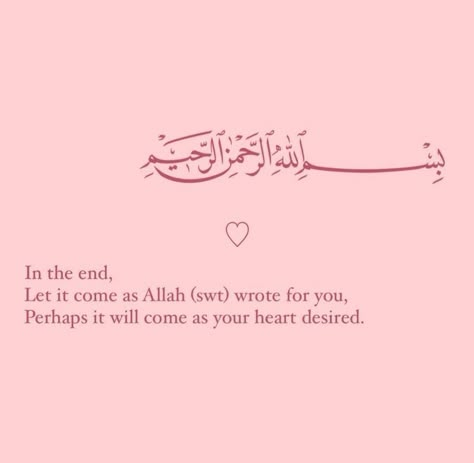 بِسْمِ اللهِ الرَّحْمٰنِ الرَّحِيْمِ
In the end,
Let it come as Allah (swt) wrote for you,
Perhaps it will come as your heart desired.